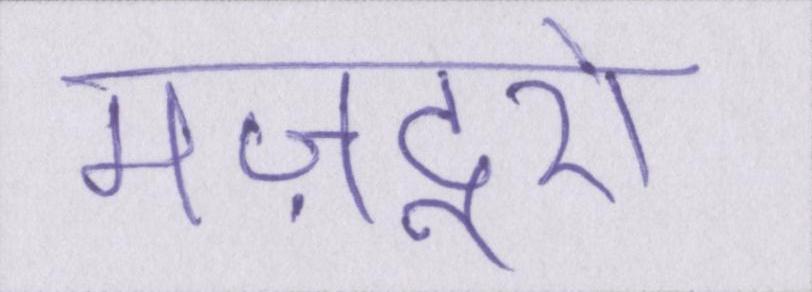 मज़दूरो